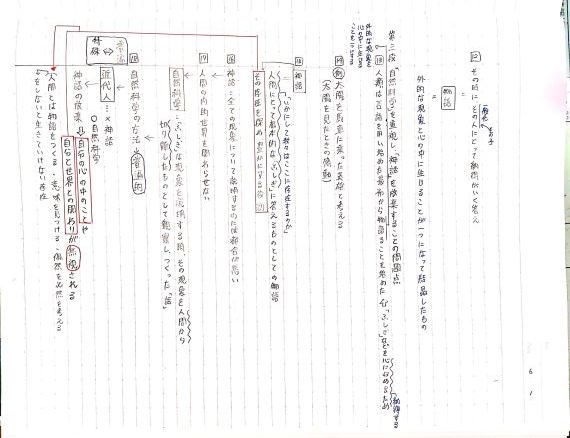 その時にその人にとって納得がいく答え
物語
外的な現象と心の中に生じることが一つになって結晶したもの
第三段 「自然科学」を重視し、「神話」を放棄することの問題点
人類は言語を用い始めた最初から物語ることを始めた
「ふしぎ」などを心に収めるため
納得する
外的な現象を
心の中に
例 太陽を馬車に乗った英雄と考える
(太陽を見たときの感動)
神話
「いかにして我々はここに存在するのか」
人間にとって基本的な「ふしぎ」に答えるものとしての物語
その存在を深め、豊かにする役割
神話…全ての現象について説明するのには都合が悪い
人間の内的世界を関わらせない
自然科学…「ふしぎ」な現象を説明する際、その現象を人間から
切り離したものとして観察し、つくった「話」
自然科学の方法 普遍的
特殊 ⇔ 普遍
近代人…×神話
○自然科学
神話の放棄 ⇒ 自分の心の中のことや
自分と世界との関わりが無視される
人間とは物語をつくる、意味を見つける、偶然を必然と考える
をしないと生きていけない存在
6
1